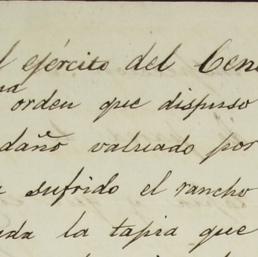 el ejército del Cen
orden que dispuso
daño valuado por
sufrido el rancho
la tapia que